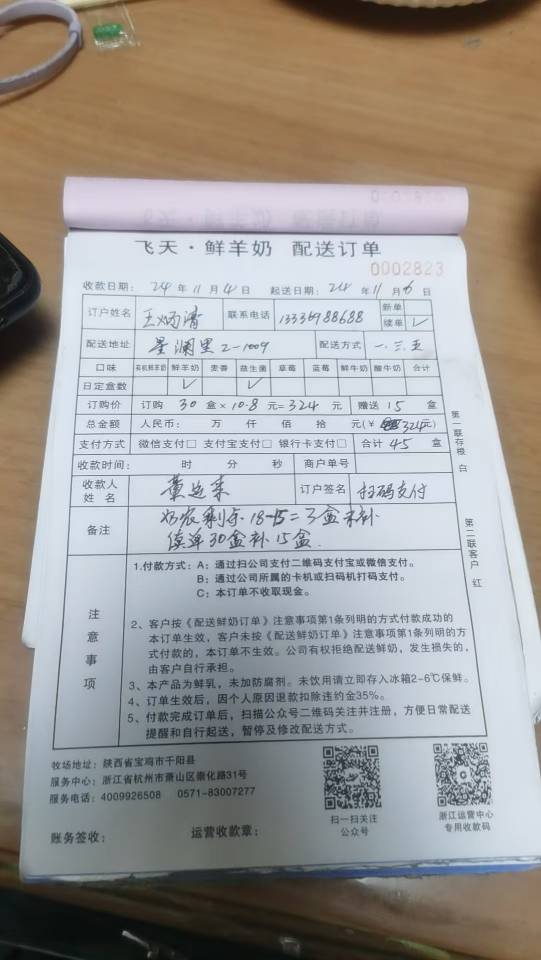 飞天·鲜羊奶 配送订单
0002823
收款日期: 24 年 11 月 4 日 起送日期: 24 年 11 月 6 日
订户姓名 王炳清 联系电话 13336988688 新单
续单 ✓
配送地址 星澜里2-1009 配送方式 一.三.五
口味 有机鲜羊奶 鲜羊奶 麦香 益生菌 草莓 蓝莓 鲜牛奶 酸牛奶 合计
日定盒数 ✓ ✓
订购价 订购 30 盒×10.8 元=324 元 赠送 15 盒
总金额 人民币: 万 仟 佰 拾 元(¥ 324元)
支付方式 微信支付□ 支付宝支付□ 银行卡支付□ 合计 45 盒
收款时间: 时 分 秒 商户单号
收款人
姓 名 订户签名 扫码支付
备注 奶农剩余18-15=3盒未补
续单30盒补15盒.
注意事项
1.付款方式: A: 通过扫公司支付二维码支付宝或微信支付。
B: 通过公司所属的卡机或扫码机打码支付。
C: 本订单不收取现金。
2、客户按《配送鲜奶订单》注意事项第1条列明的方式付款成功的
本订单生效，客户未按《配送鲜奶订单》注意事项第1条列明的方
式付款的，本订单不生效。公司有权拒绝配送鲜奶，发生损失的，
由客户自行承担。
3、本产品为鲜乳，未加防腐剂。未饮用请立即存入冰箱2-6℃保鲜。
4、订单生效后，因个人原因退款扣除违约金35%。
5、付款完成订单后，扫描公众号二维码关注并注册，方便日常配送
提醒和自行起送，暂停及修改配送方式。
第一联存根 白
第二联客户 红
牧场地址: 陕西省宝鸡市千阳县
服务中心: 浙江省杭州市萧山区崇化路31号
服务电话: 4009926508 0571-83007277
扫一扫关注
公众号
浙江运营中心
专用收款码
账务签收: 运营收款章: